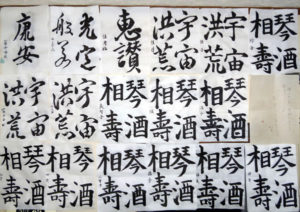 琴酒
相壽
宇宙
洪荒
宇宙
洪荒
惠讃
光定
般若
康安
琴酒
相壽
琴酒
相壽
琴酒
相壽
宇宙
洪荒
宇宙
洪荒
琴酒
相壽
琴酒
相壽
琴酒
相壽
琴酒
相壽
琴酒
相壽
琴酒
相壽